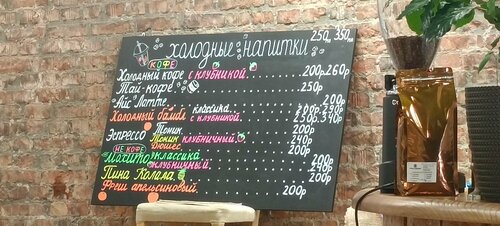 ХОЛОДНЫЕ НАПИТКИ 250 350
КОФЕ
ХОЛОДНЫЙ КОФЕ С КЛУБНИКОЙ 200р 260р
ТАЙ-КОФЕ 250р
АЙС ЛАТТЕ 200р
ХОЛОДНЫЙ БАМБЛ КЛАССИКА 200р 290р
С КЛУБНИКОЙ 250р 340р
ЭСПРЕССО ТОНИК 200р
ТОНИК КЛУБНИЧНЫЙ 240р
ДЮШЕС 200р
НЕ КОФЕ
МОХИТО КЛАССИКА 200р
КЛУБНИЧНЫЙ 240р
ПИНА КОЛАДА 200р
ФРЕШ АПЕЛЬСИНОВЫЙ 200р